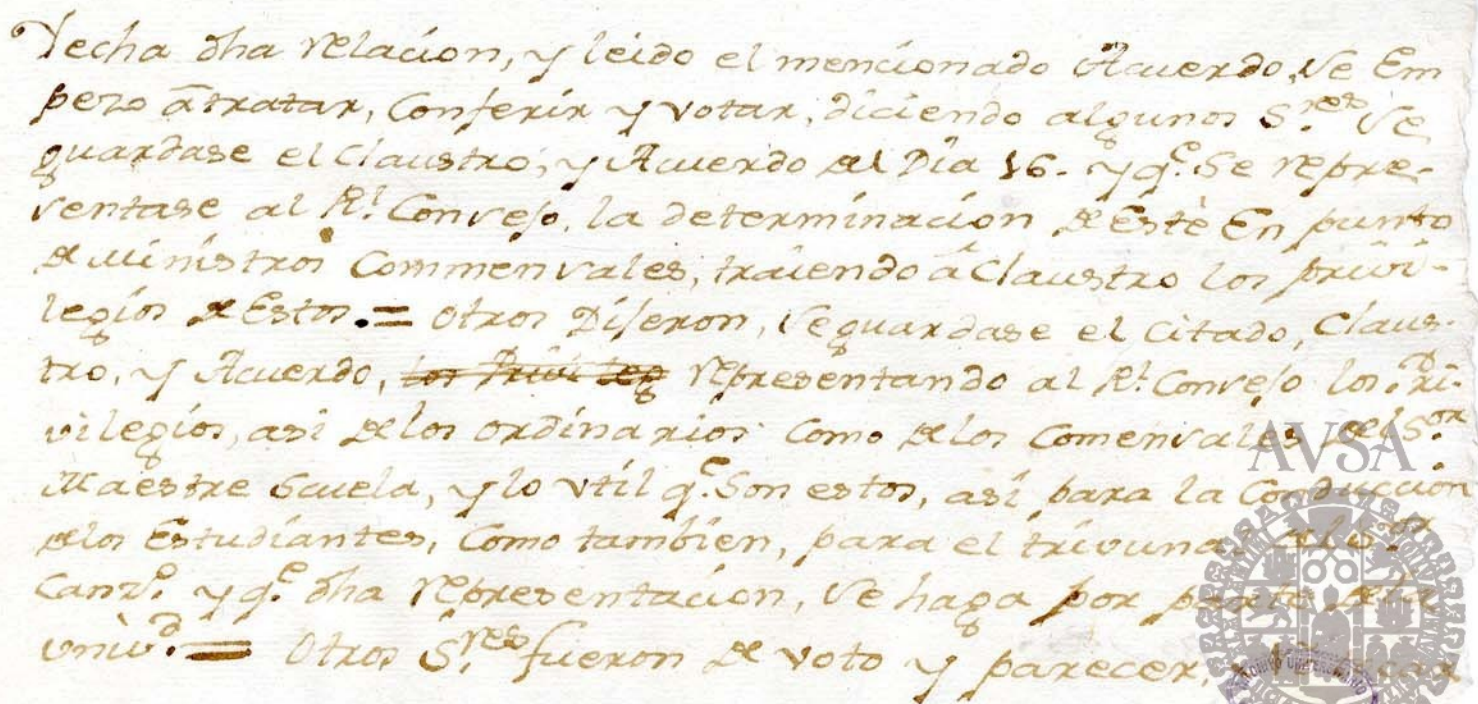 Yecha dha relacion, y leido el mencionado Acuerdo, se Em
pezo â tratar, Conferir y votar, diciendo algunos S.res se
guardase el Claustro, y Acuerdo del Dia 16. y q.e Se repre-
sentase al R.l Consejo, la determinacion de Este En punto
de Ministros Commensales, traiendo â Claustro los privi-
legios de Estos. = otros Dijeron, se guardase el Citado, Claus-
tro, y Acuerdo, los Privileg representando al R.l Consejo los Pri-
vilegios, asi de los ordinarios como de los Comensales del S.or
Maestre Scuela, y lo vtil q.e Son estos, asi para la Conduccion
de los Estudiantes, Como tambien, para el trivunal del S.or
Canz.o y q.e dha representacion, se haga por parte de la
univ.d = Otros S.res fueron de voto y parecer,
AVSA